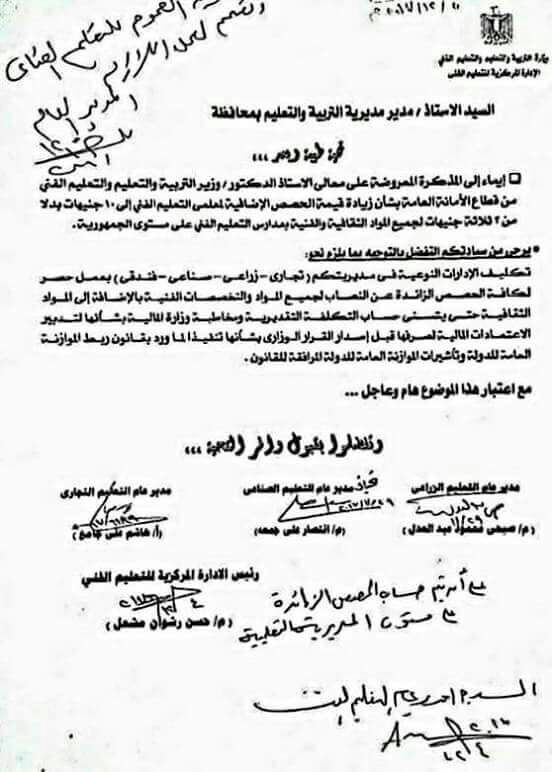 العموم للتعليم الفنى
٢٠١٧/١٢/
وزارة التربية والتعليم والتعليم الفني
الإدارة المركزية للتعليم الفنى
السيد الاستاذ / مدير مديرية التربية والتعليم بمحافظة
تحية طيبة وبعد ،،،
إيماء إلى المذكرة المعروضة على معالى الاستاذ الدكتور / وزير التربية والتعليم والتعليم الفني
من قطاع الأمانة العامة بشأن زيادة قيمة الحصص الإضافية لمعلمى التعليم الفني إلى ١٠ جنيهات بدلا
من ٣ ثلاثة جنيهات لجميع المواد الثقافية والفنية بمدارس التعليم الفني على مستوى الجمهورية .
يرجى من سيادتكم التفضل بالتوجيه بما يلزم نحو:
تكليف الإدارات النوعية فى مديريتكم ( تجارى - زراعى - صناعى - فندقى ) بعمل حصر
لكافة الحصص الزائدة عن النصاب لجميع المواد والتخصصات الفنية بالإضافة إلى المواد
الثقافية حتى يتسنى حساب التكلفة التقديرية ومخاطبة وزارة المالية بشأنها لتدبير
الاعتمادات المالية لصرفها قبل إصدار القرار الوزارى بشأنها تنفيذا لما ورد بقانون ربط الموازنة
العامة للدولة وتأشيرات الموازنة العامة للدولة المرافقة للقانون .
مع اعتبار هذا الموضوع هام وعاجل ...
وتفضلوا بقبول وافر التحية ،،،
مدير عام التعليم الزراعى
مدير عام للتعليم الصناعى
مدير عام التعليم التجارى
( م/ صبحى محمود عبد العدل )
( م/ انتصار على جمعه )
( أ/ هاشم على جامع )
رئيس الادارة المركزية للتعليم الفني
( م/ حسن رضوان مشعل )
حساب الحصص الزائدة